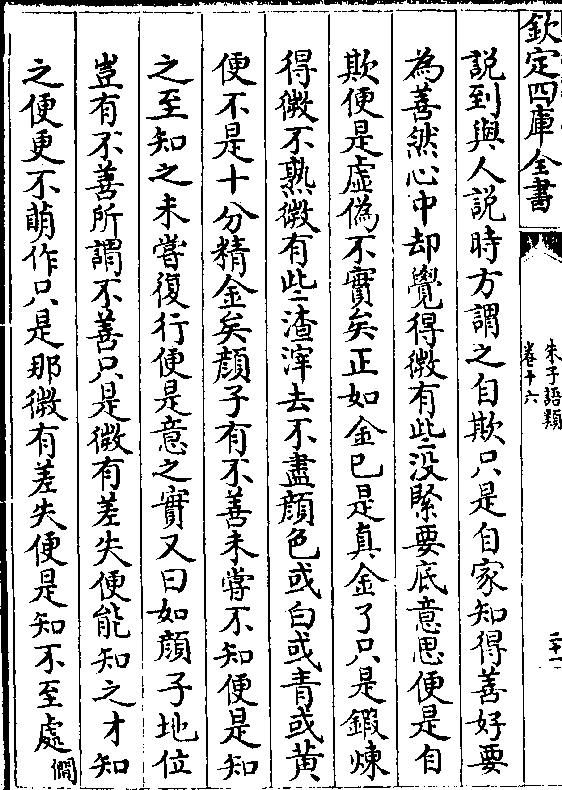 欽定四庫全書
朱子語類
卷十六
二十一
説到與人説時方謂之自欺只是自家知得善好要
為善然心中却覺得微有些没緊要底意思便是自
欺便是虚偽不實矣正如金已是真金了只是鍛煉
得微不熟微有些渣滓去不盡顔色或白或青或黄
便不是十分精金矣顔子有不善未嘗不知便是知
之至知之未嘗復行便是意之實又曰如顔子地位
豈有不善所謂不善只是微有差失便能知之才知
之便更不萌作只是那微有差失便是知不至處僩